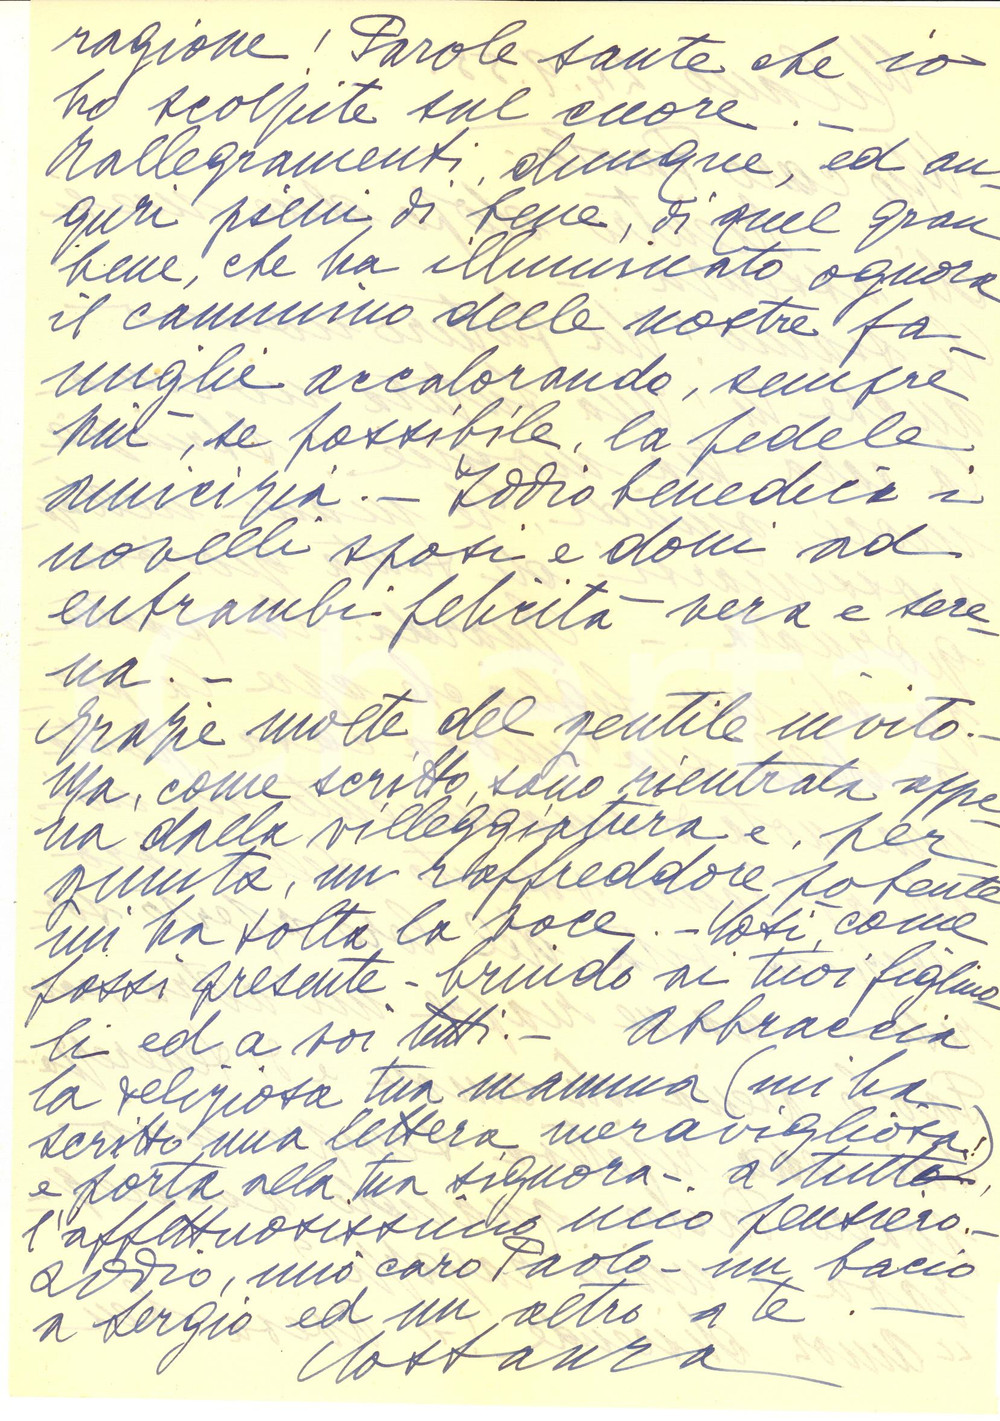 ragione! Parole sante che io
ho scolpite sul cuore. -
Rallegramenti, dunque, ed au-
guri pieni di bene, di quel gran
bene, che ha illuminato ognora
il cammino delle nostre fa-
miglie accalorando, sempre
più, se possibile, la fedele
amicizia. - Iddio benedica i
novelli sposi e doni ad
entrambi felicità vera e sere-
na. -
Grazie molte del gentile invito. -
Ma, come scritto, sono rientrata appe-
na dalla villeggiatura e, per
giunta, un raffreddore potente
mi ha tolta la voce. - Così, come
fossi presente - brindo ai tuoi figliuo-
li ed a voi tutti. - Abbraccia
la religiosa tua mamma (mi ha
scritto una lettera meravigliosa!)
e porta alla tua signora - a tutta,
l'affettuosissimo mio pensiero. -
Addio, mio caro Paolo - un bacio
a Sergio ed un altro a te. -
Costanza